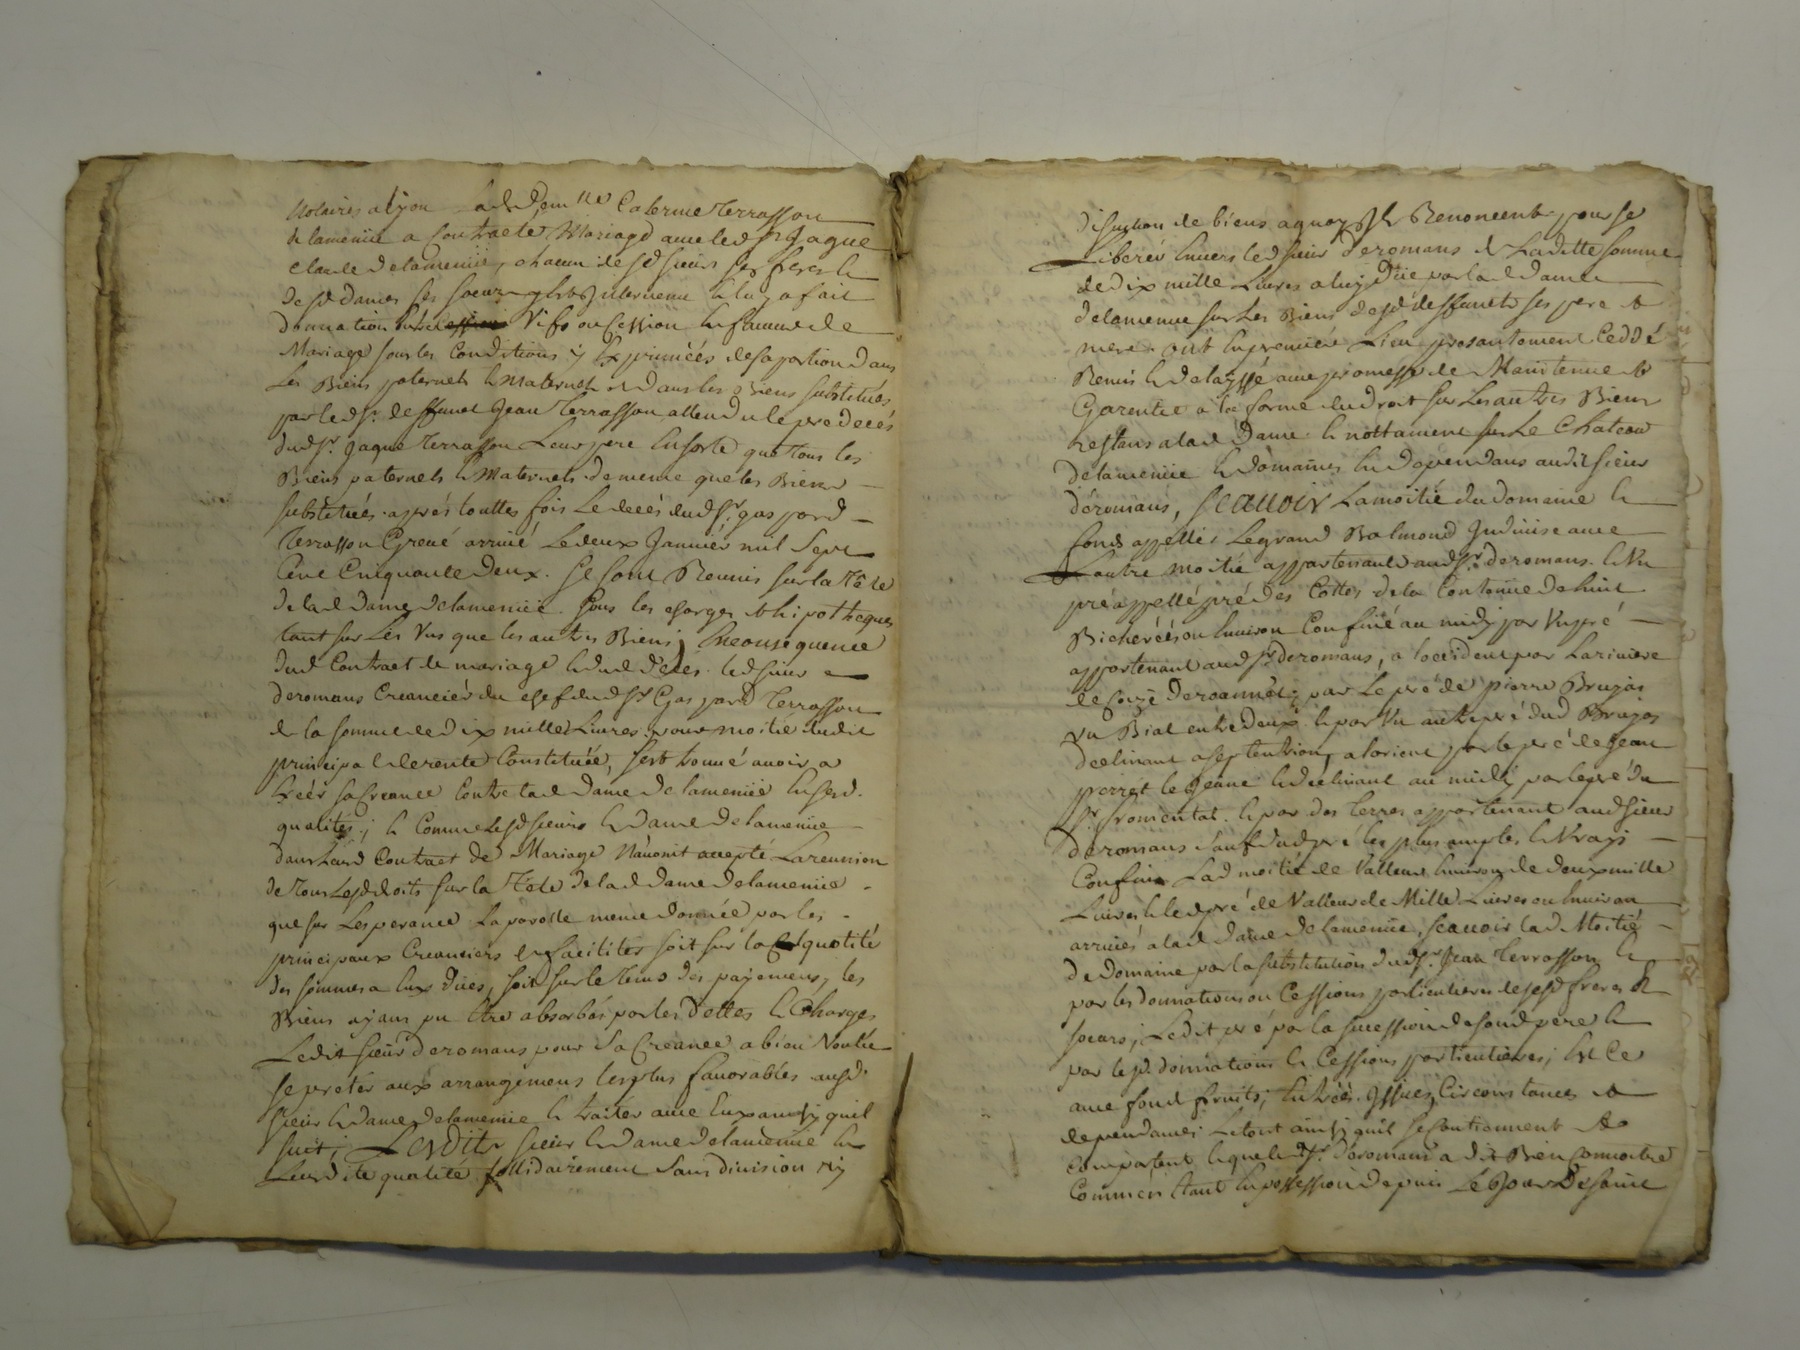 Notaires a lyon lad Dem.lle Caterine Terrasson
delamenüe a Contracté Mariage avec led Sr. Jaque
Claude delamenüe, chacun desd sieurs ses freres et
desd dames ses soeurs y est Intervenu et luy a fait
donnation entre Vifs ou Cession en faveur de
Mariage sous les Conditions y Exprimées de sa portion dans
les Biens paternels et Maternels et dans les Biens substitués
par led Sr. deffunt Jean Terrasson attendu le predecés
dud Sr. Jaque Terrasson Leur pere En sorte que Tous les
Biens paternels et Maternels de meme que les Biens
substitués aprés touttes fois Le decés dud Sr. gaspard
Terrasson Grevé arrivé Le deux Janvier mil Sept
Cent Cinquante deux. se sont Reunis sur la Tête
de lad dame delamenüe sous les charges et hipotheques
tant sur Les Uns que les autres Biens; En consequence
dud Contract de mariage et dud decés led sieur
deromans Creancier du chef dud Sr Gaspard Terrasson
de la somme de dix mille Livres pour moitié dudit
principal de rente Constituée, s'est trouvé avoir a
Exercer sa Creance Contre lad dame delamenüe Esd.
qualités; et Comme lesd sieurs et dame delamenüe
dans Led Contract de Mariage N'auoint accepté La reunion
de Tous lesd droits sur la Tête de lad dame delamenüe
que sur L'esperance La parolle meme donnée par les
principaux Creanciers de facilités soit sur la quotité
des sommes a Eux dües, soit sur le tems des payemens, les
Biens ayans pu être absorbés par les dettes et Charges
Ledit sieur deromans pour sa Creance a bien Voulu
se prêter aux arrangemens les plus favorables ausd.
sieur et dame delamenüe et traiter avec Eux ainsy quil
suit; Lesdits sieur et dame delamenüe En
Leurdite qualité sollidairement sans division ny
discution de biens a quoy Ils Renoncent pour se
Liberer Envers led sieur deromans de Laditte somme
de dix mille Livres a luy düe par lad dame
delamenüe sur Les Biens desd deffunts ses pere et
mere ont En premier Lieu presentement Ceddé
Remis et delayssé avec promesse de Maintenue et
Garentie a la forme du droit sur Les autres Biens
restans a lad Dame et nottament sur Le Chateau
delamenüe et domaines En dependans audit sieur
deromans, sçauoir La moitié du domaine et
fonds appellé Le grand Balmond Indivise avec
L'autre moitié appartenant aud Sr. deromans. et Un
pré appellé pré des Cottes de la Contenüe de huit
Bicherées ou Environ Confiné au midy par Un pré
appartenant aud Sr. deromans, a l'occident par La riviere
par Le pré de pierre Brujas
un Bial entre deux et par Un autre pré dud Brujas
declinant a septentrion, a l'orient par le pré de Jean
perret le Jeune et declinant au midy par le pré du
Sr. fromentat et par des Terres appartenant aud sieur
deromans sauf dud pré les plus amples et Vrays
Confins Lad moitié de Valleur Environ de deux mille
Livres et led pré de Valleur de Mille Livres ou Environ
arrivés a lad dame delamenüe, sçauoir lad Moitié
de Domaine par la substitution dud Sr. Jean Terrasson et
par les donnations ou Cessions particulieres desesd freres et
soeurs; Ledit pré par la sucession de sond pere et
par lesd. donnations et Cessions particulieres; Et Ce
avec fond fruits, Entrées, Issües, Circonstances et
dependances Le tout ainsy quil se Contiennent et
Comportent et que led Sr. deromans a dit Bien Connoitre
Comme En Etant En possession depuis Le Jour De saint